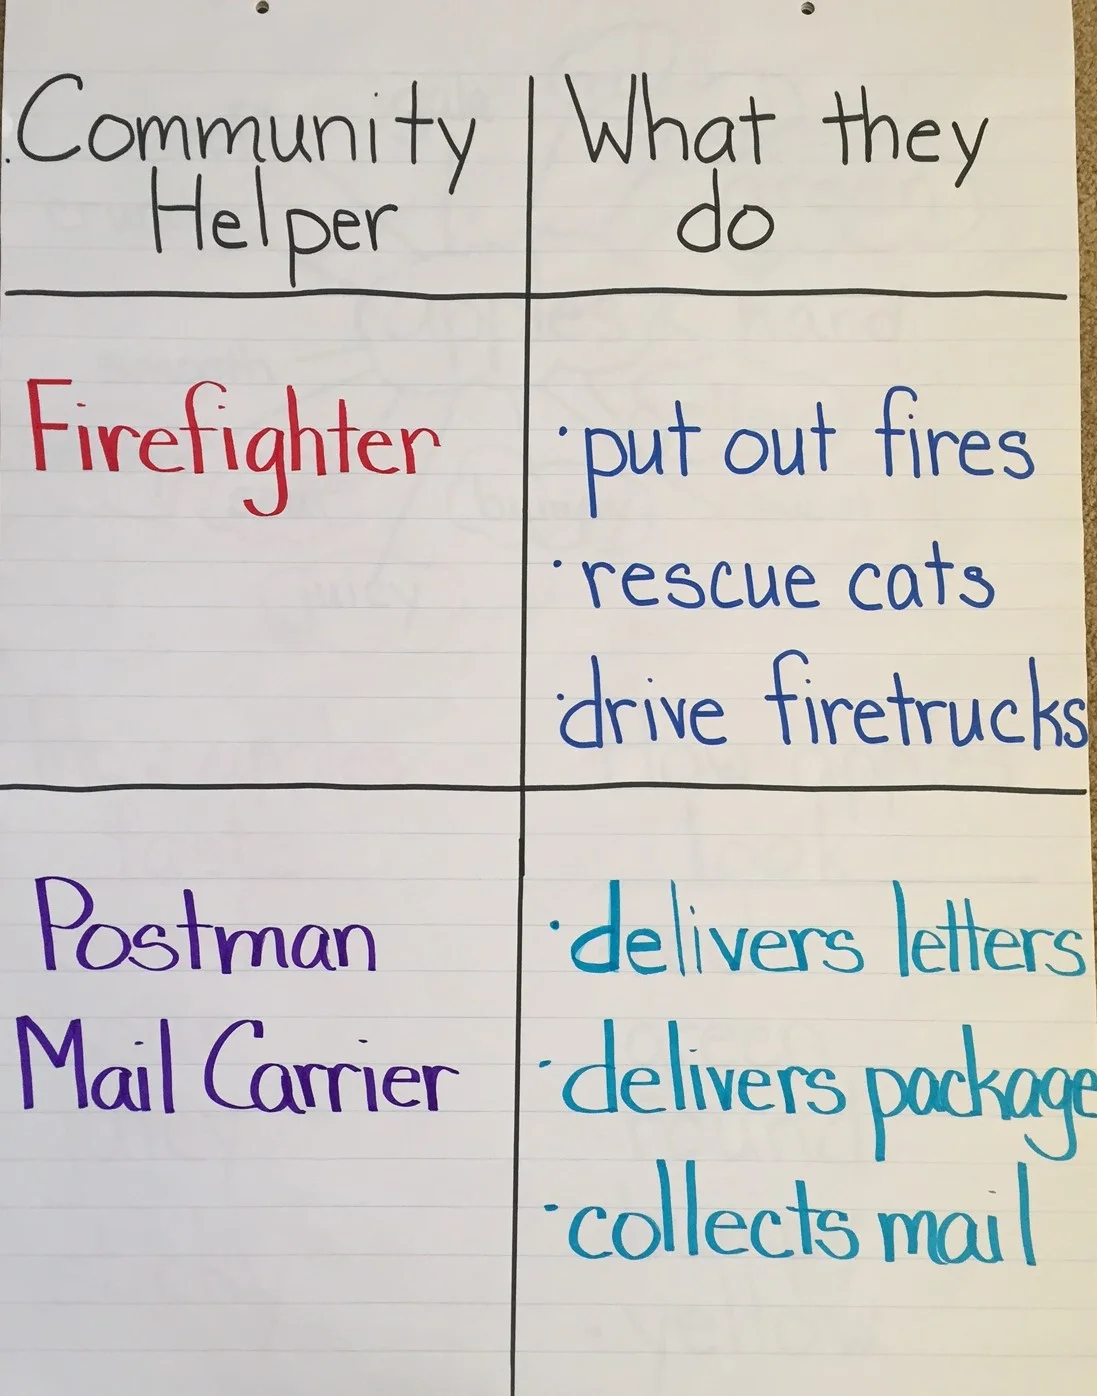 Community
Helper
What they
do
Firefighter
·put out fires
·rescue cats
·drive firetrucks
Postman
Mail Carrier
·delivers letters
·delivers package
·collects mail